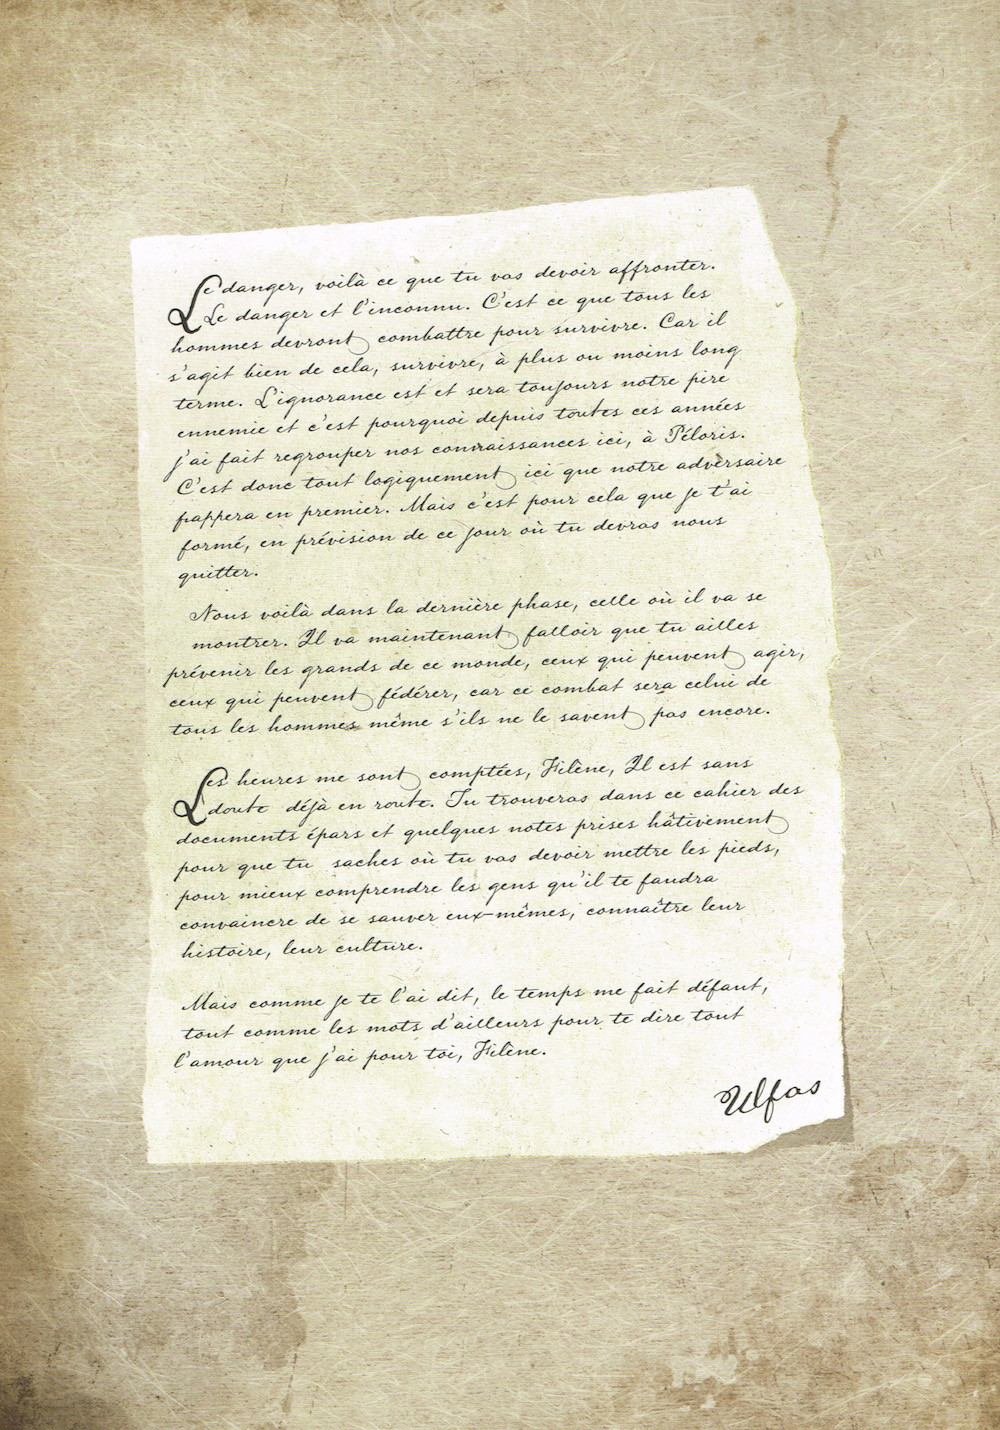 Le danger, voilà ce que tu vas devoir affronter.
Le danger et l'inconnu. C'est ce que tous les
hommes devront combattre pour survivre. Car il
s'agit bien de cela, survivre, à plus ou moins long
terme. L'ignorance est et sera toujours notre pire
ennemie et c'est pourquoi depuis toutes ces années
j'ai fait regrouper nos connaissances ici, à Péloris.
C'est donc tout logiquement ici que notre adversaire
frappera en premier. Mais c'est pour cela que je t'ai
formé, en prévision de ce jour où tu devras nous
quitter.
Nous voilà dans la dernière phase, celle où il va se
montrer. Il va maintenant falloir que tu ailles
prévenir les grands de ce monde, ceux qui peuvent agir,
ceux qui peuvent fédérer, car ce combat sera celui de
tous les hommes même s'ils ne le savent pas encore.
Les heures me sont comptées, Filène, Il est sans
doute déjà en route. Tu trouveras dans ce cahier des
documents épars et quelques notes prises hâtivement
pour que tu saches où tu vas devoir mettre les pieds,
pour mieux comprendre les gens qu'il te faudra
convaincre de se sauver eux-mêmes, connaître leur
histoire, leur culture.
Mais comme je te l'ai dit, le temps me fait défaut,
tout comme les mots d'ailleurs pour te dire tout
l'amour que j'ai pour toi, Filène.
Ulfas